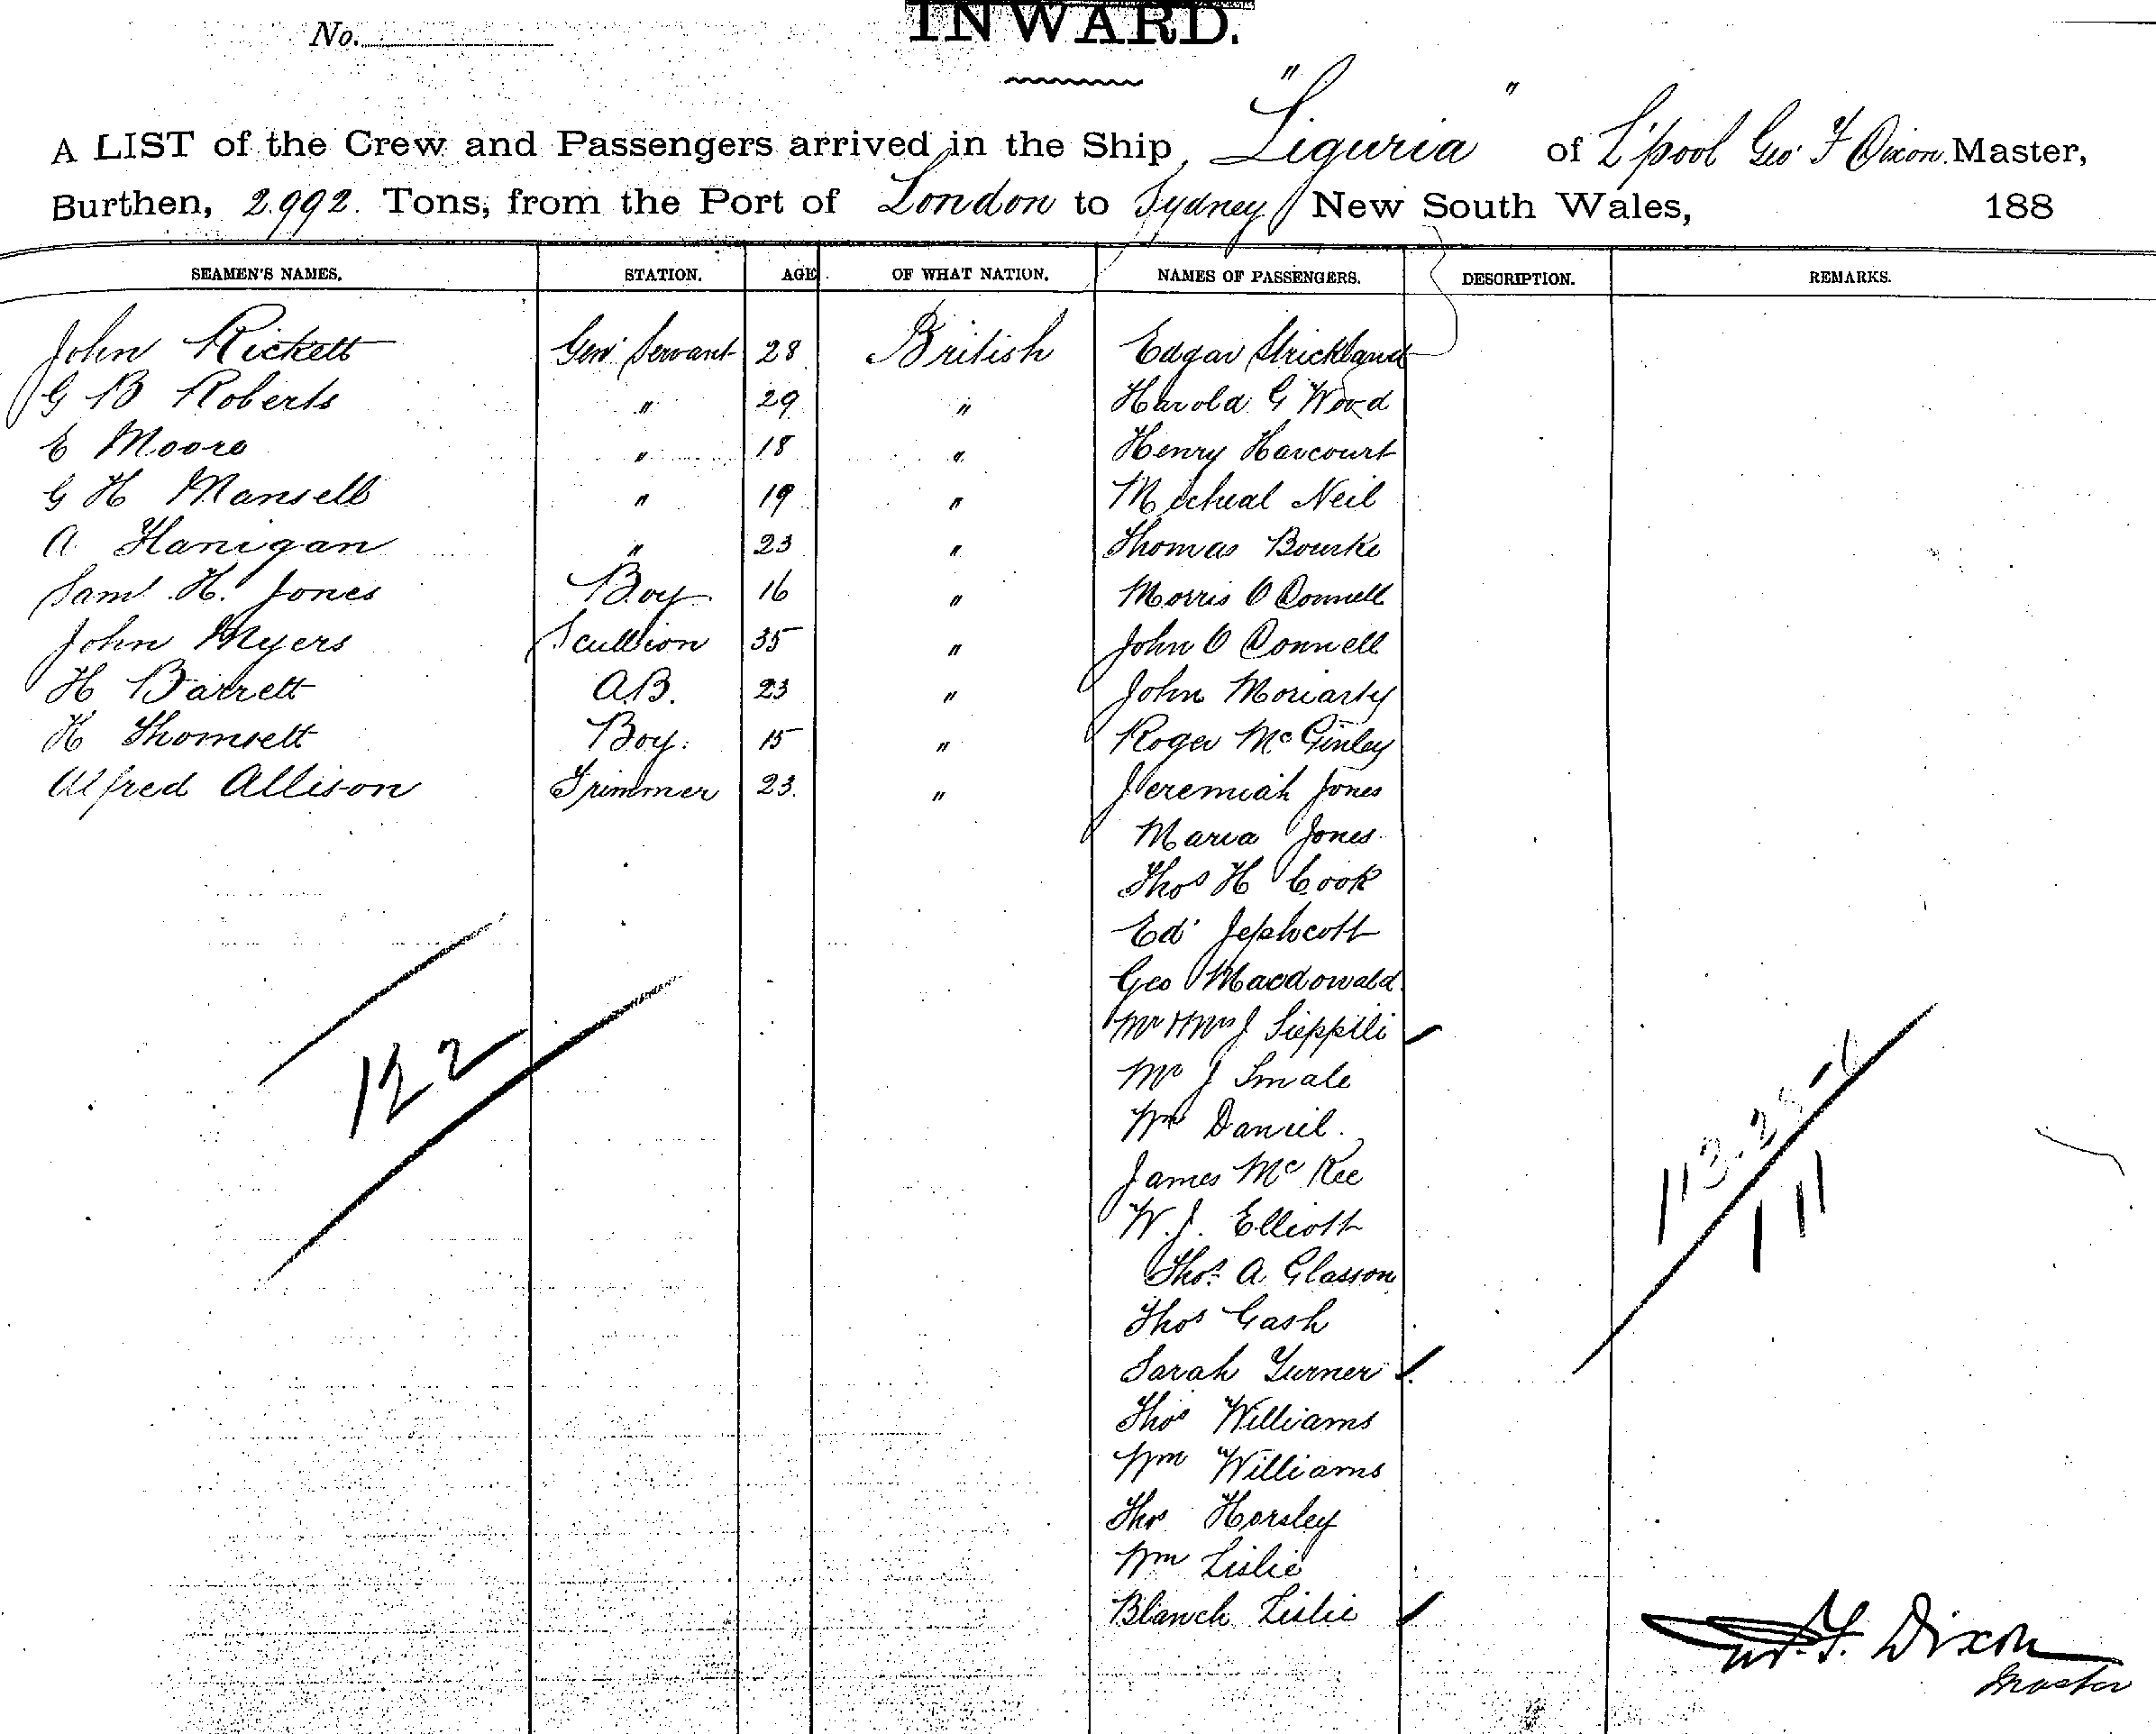 No.
INWARD.
A LIST of the Crew and Passengers arrived in the Ship "Liguria" of L'pool Geo F Dixon Master,
Burthen, 2.992. Tons, from the Port of London to Sydney New South Wales, 188
SEAMEN'S NAMES. STATION. AGE. OF WHAT NATION. NAMES OF PASSENGERS. DESCRIPTION. REMARKS.
John Rickett Genl Servant 28 British Edgar Strickland
G B Roberts " 29 " Harold G Wood
E Moore " 18 " Henry Harcourt
G H Mansell " 19 " Micheal Neil
A Hanigan " 23 " Thomas Bourke
Saml H. Jones Boy 16 " Morris O Connell
John Myers Scullion 35 " John O Connell
H Barrett A.B. 23 " John Moriarty
H Thomsett Boy. 15 " Roger McGinley
Alfred Allison Trimmer 23. " Jeremiah Jones
Maria Jones
Thos H Cook
Ed Jephcott
Geo Macdowald
Mr & Mrs J Sieppili
Mr J Smale
Wm Daniel.
James McKee
W. J. Elliott
Thos A Glasson
Thos Gash
Sarah Turner
Thos Williams
Wm Williams
Thos Horsley
Wm Lislie
Blanch Lislie
122
111
F. Dixon
Master